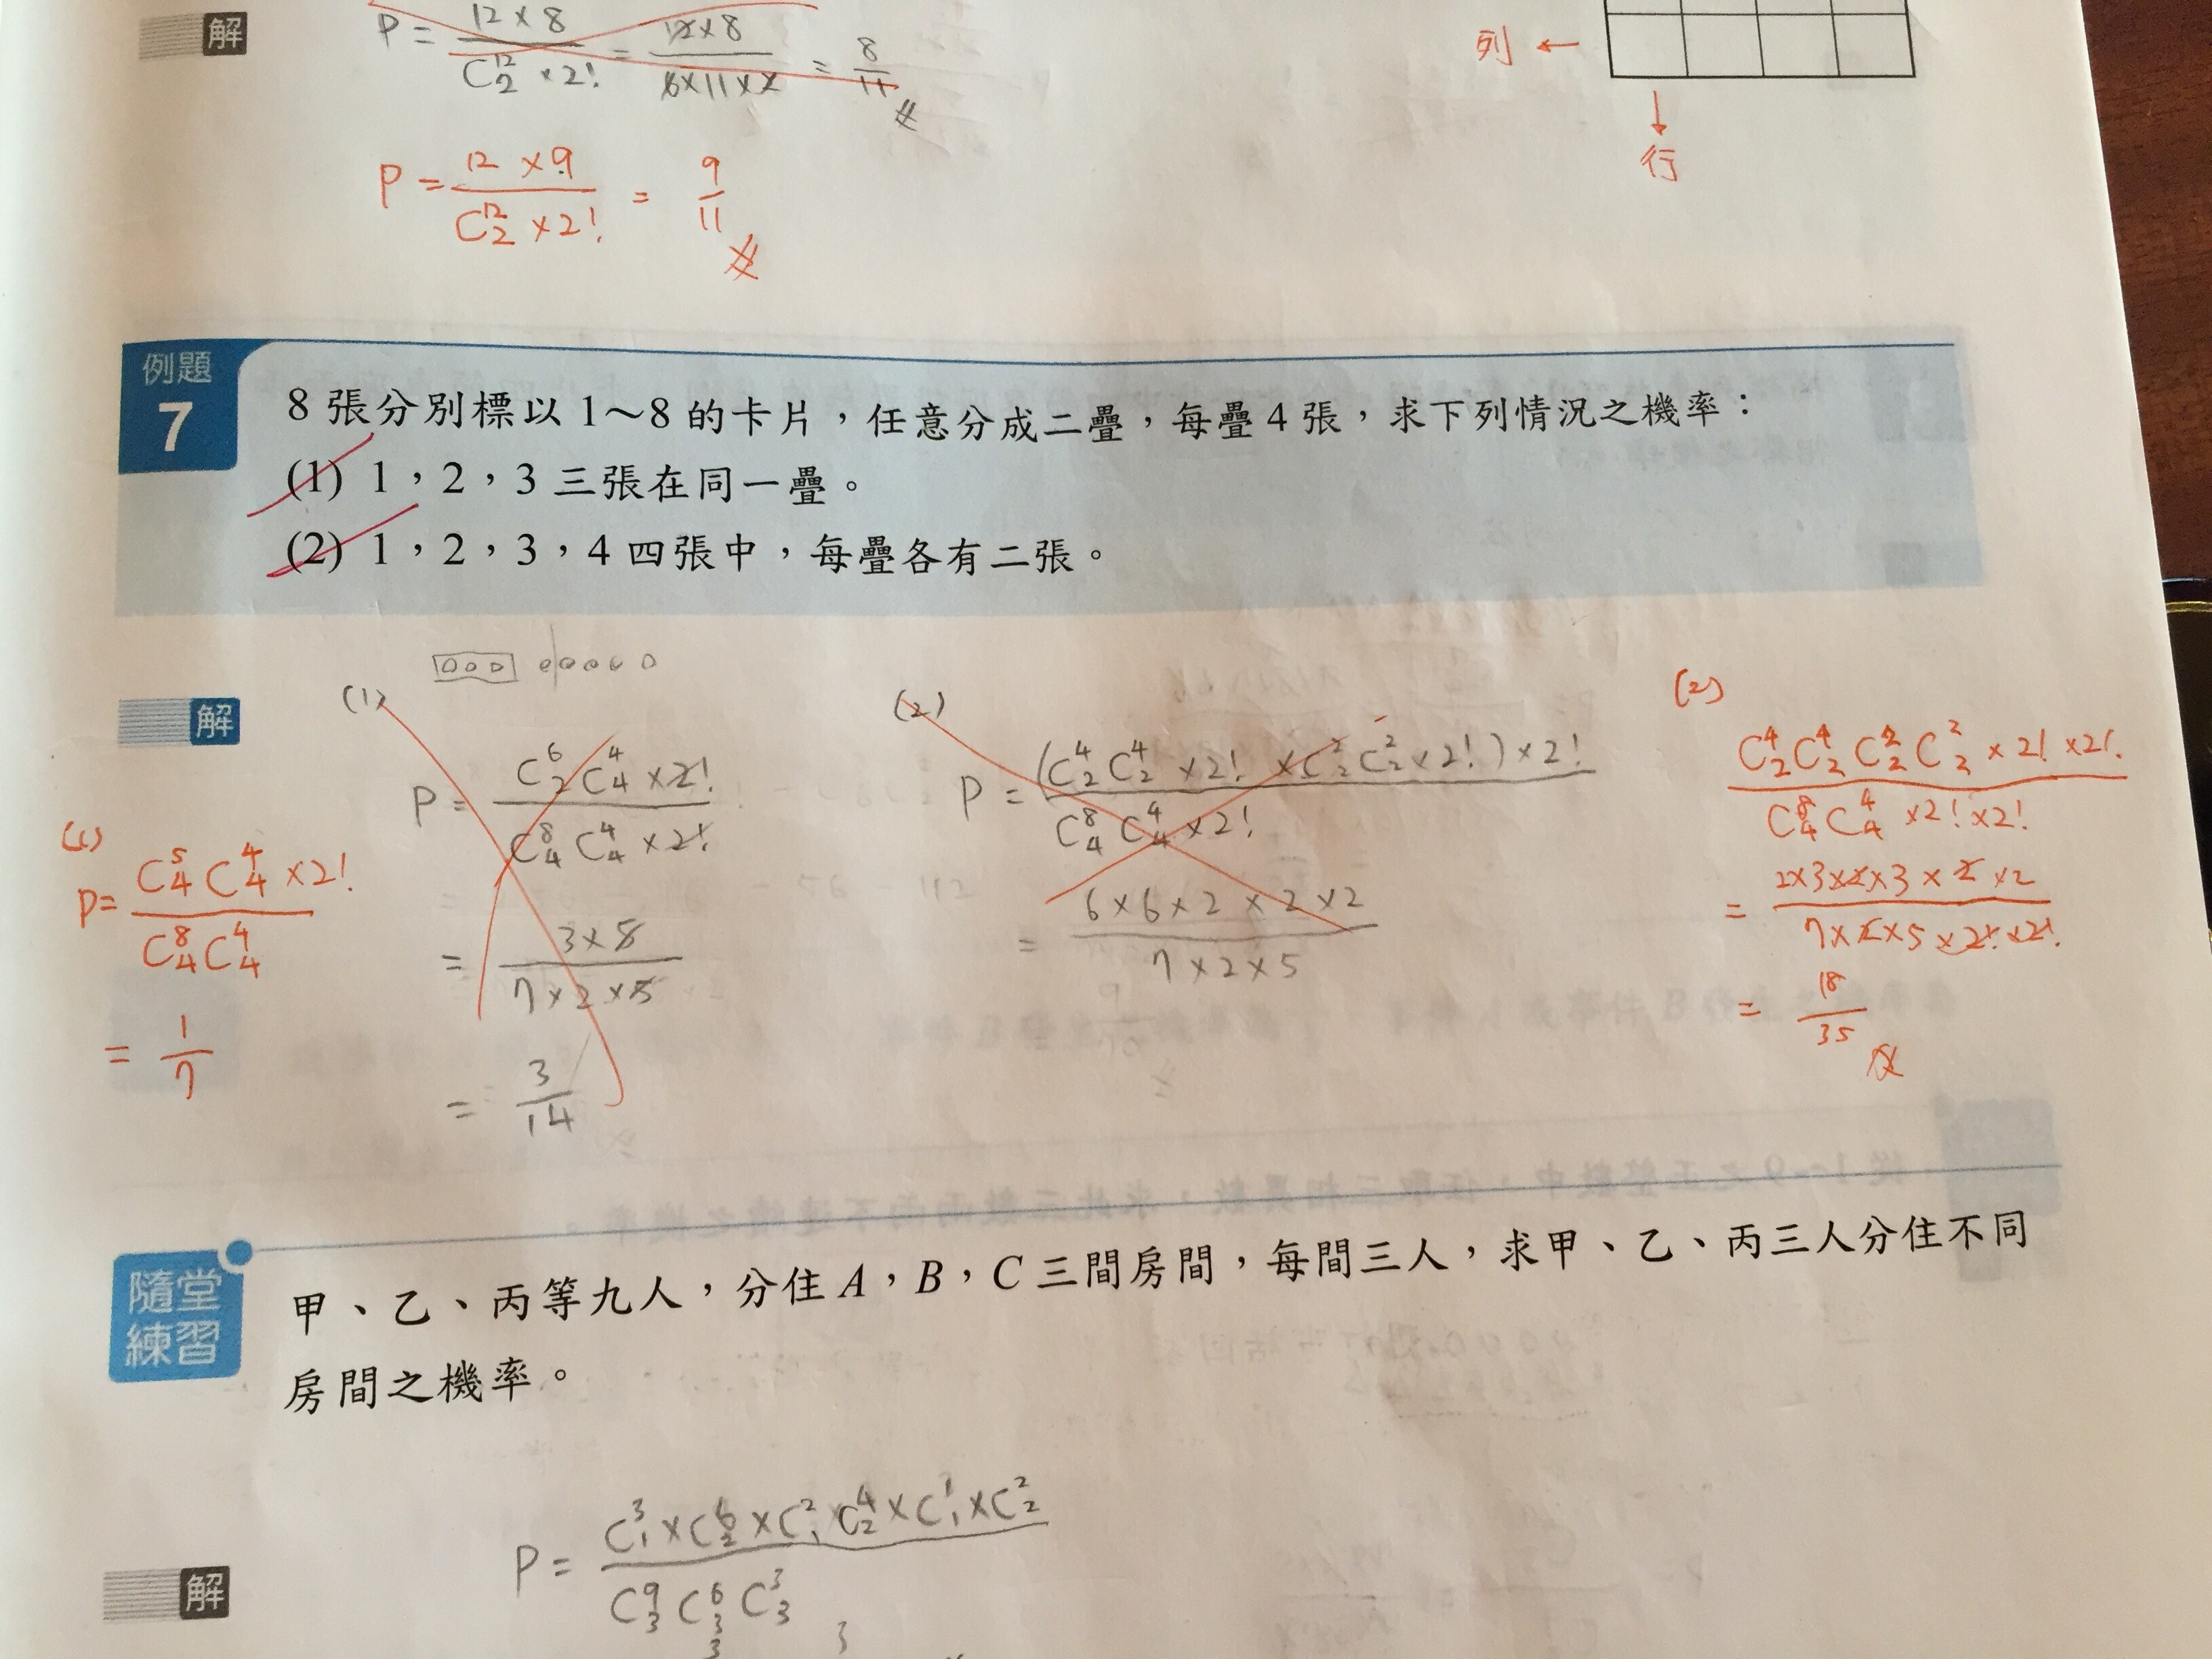 解
P = 12 × 8 / C^12_2 × 2! = 12 × 8 / 6 × 11 × 2 = 8/11
列 ←
↓
行
P = 12 × 9 / C^12_2 × 2! = 9/11
例題
7
8 張分別標以 1～8 的卡片，任意分成二疊，每疊 4 張，求下列情況之機率：
(1) 1，2，3 三張在同一疊。
(2) 1，2，3，4 四張中，每疊各有二張。
解
(1)
P = C^6_2 C^4_4 × 2! / C^8_4 C^4_4 × 2!
= 3 × 5 / 7 × 2 × 5
= 3/14
(1)
P = C^5_4 C^4_4 × 2! / C^8_4 C^4_4
= 1/7
(2)
P = (C^4_2 C^4_2 × 2! × C^2_2 C^2_2 × 2!) × 2! / C^8_4 C^4_4 × 2!
= 6 × 6 × 2 × 2 × 2 / 7 × 2 × 5
(2)
C^4_2 C^4_2 C^2_2 C^2_2 × 2! × 2! / C^8_4 C^4_4 × 2! × 2!
= 2×3×2×3 × 2 × 2 / 7 × 2 × 5 × 2! × 2!
= 18/35
隨堂
練習
甲、乙、丙等九人，分住 A，B，C 三間房間，每間三人，求甲、乙、丙三人分住不同
房間之機率。
解
P = C^3_1 × C^6_2 × C^2_1 × C^4_2 × C^1_1 × C^2_2 / C^9_3 C^6_3 C^3_3
3 3